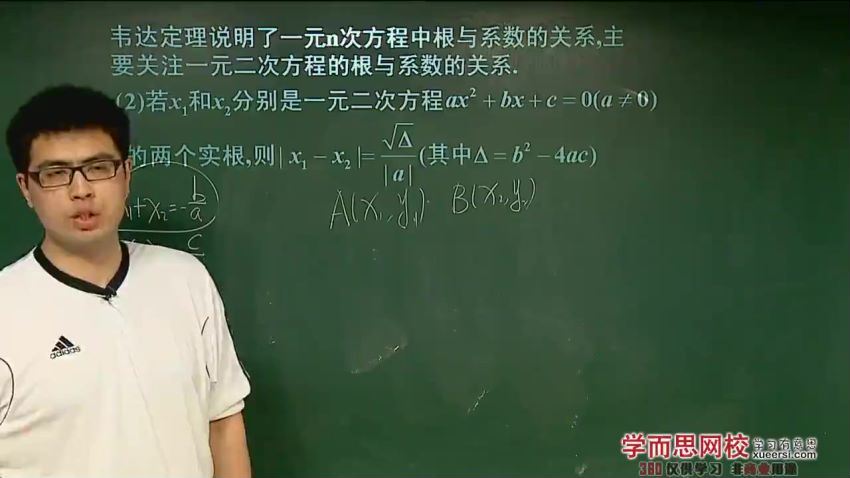 韦达定理说明了一元n次方程中根与系数的关系,主
要关注一元二次方程的根与系数的关系.
(2)若x₁和x₂分别是一元二次方程ax²+bx+c=0(a≠0)
的两个实根,则|x₁-x₂|=√Δ/|a|(其中Δ=b²-4ac)
+x₂=-b/a
A(x₁,y₁) B(x₂,y₂)
c
adidas
学而思网校 学习有意思
xueersi.com
360 仅供学习 非商业用途